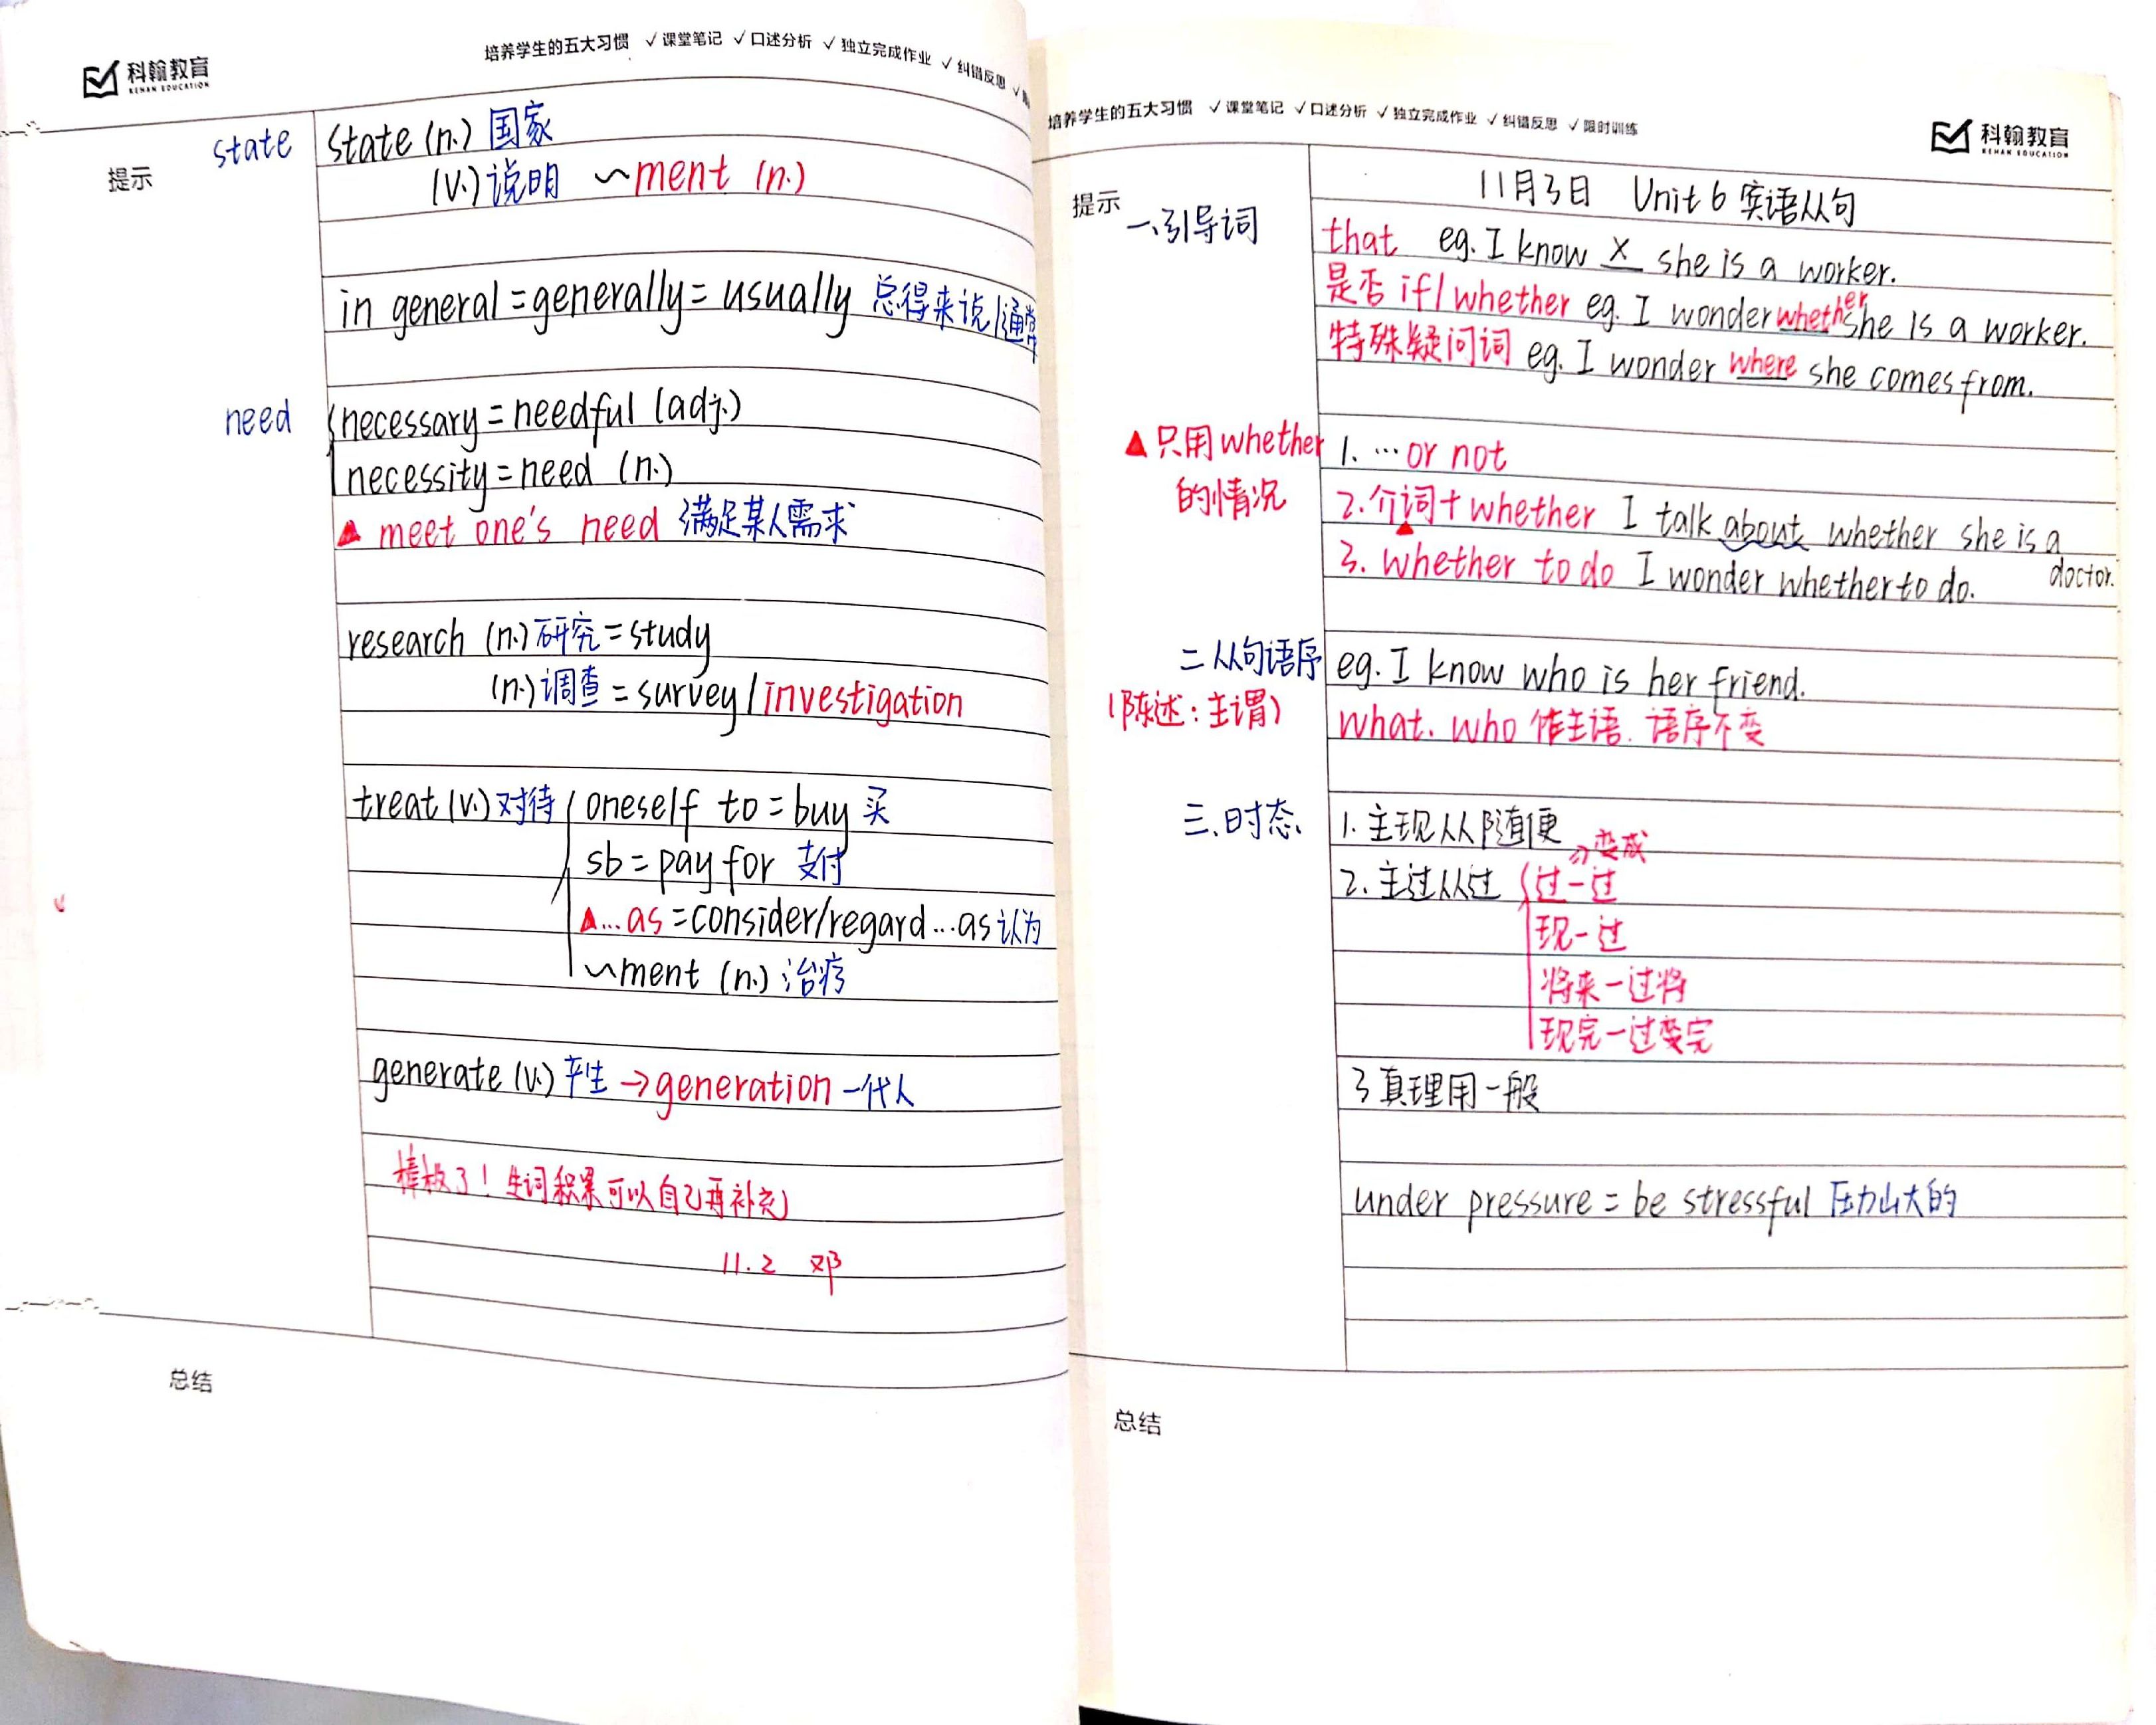 科翰教育
KEHAN EDUCATION
培养学生的五大习惯 √课堂笔记 √口述分析 √独立完成作业 √纠错反思 √
提示
state
state (n.) 国家
(v.) 说明 ~ment (n.)
in general = generally = usually 总得来说/通常
need
necessary = needful (adj.)
necessity = need (n.)
▲ meet one's need 满足某人需求
research (n.) 研究 = study
(n.) 调查 = survey / investigation
treat (v.) 对待 oneself to = buy 买
sb = pay for 支付
▲... as = consider/regard ... as 认为
~ment (n.) 治疗
generate (v.) 产生 → generation 一代人
棒极了！生词积累可以自己再补充
11.2 邓
总结
培养学生的五大习惯 √课堂笔记 √口述分析 √独立完成作业 √纠错反思 √限时训练
科翰教育
KEHAN EDUCATION
提示
11月3日 Unit 6 宾语从句
一、引导词
that eg. I know × she is a worker.
是否 if/whether eg. I wonder whether she is a worker.
特殊疑问词 eg. I wonder where she comes from.
▲只用whether
的情况
1. ... or not
2. 介词+whether I talk about whether she is a
doctor.
3. whether to do I wonder whether to do.
二从句语序
(陈述：主谓)
eg. I know who is her friend.
what. who 作主语. 语序不变
三、时态
1. 主现从随便
变成
2. 主过从过 过一过
现一过
将来一过将
现完一过变完
3 真理用一般
under pressure = be stressful 压力山大的
总结